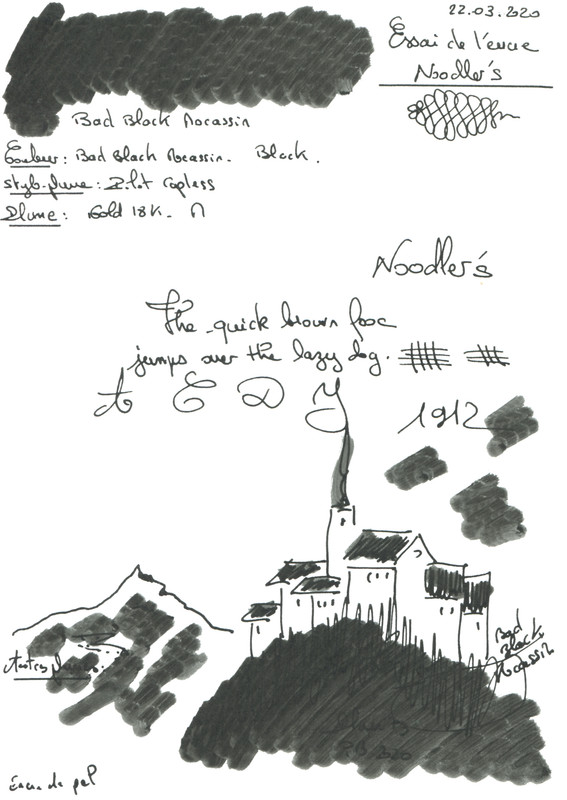 22.03.2020
Essai de l'encre
Noodler's
Bad Black Mocassin
Couleur : Bad Black Mocassin. Black.
Stylo-plume : Pilot Capless
Plume : Gold 18K. M
Noodler's
The quick brown fox
jumps over the lazy dog.
A E D Y
1912
Bad
Black
Mocassin
Autres